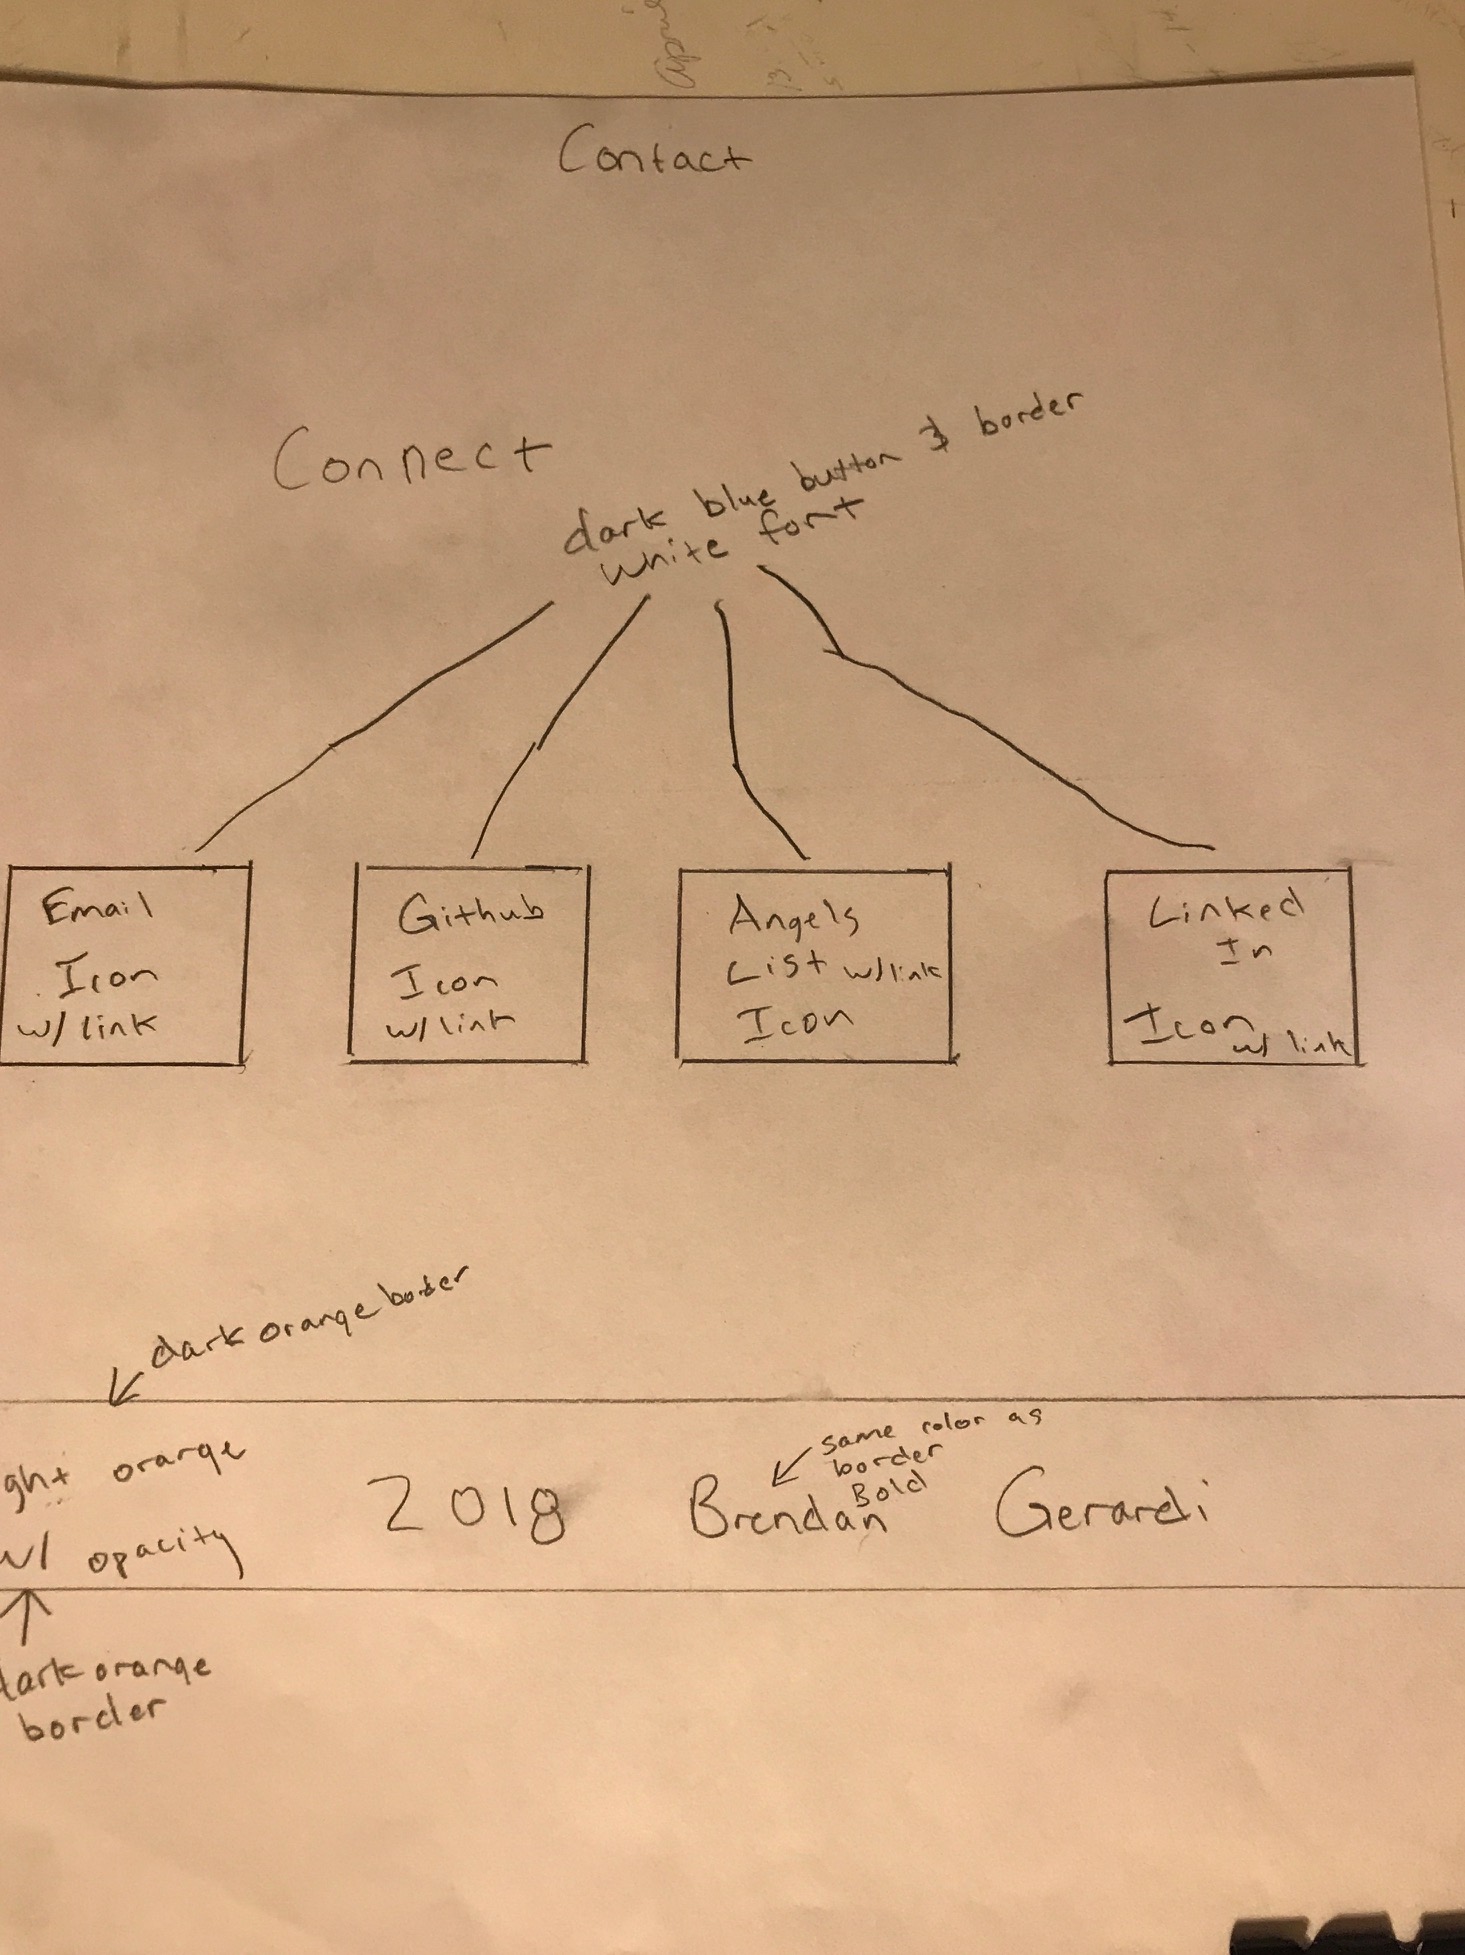 Contact
Connect
dark blue button & border
white font
Email
Icon
w/ link
Github
Icon
w/ link
Angels
List w/link
Icon
Linked
In
Icon
w/ link
dark orange border
ght orange
w/ opacity
2018
same color as
border
Bold
Brendan Gerardi
dark orange
border